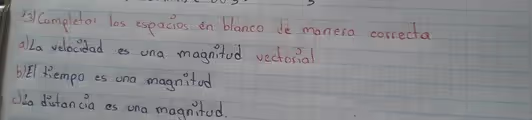 3) Completar los espacios en blanco de manera correcta
a) La velocidad es una magnitud vectorial
b) El tiempo es una magnitud
c) La distancia es una magnitud.